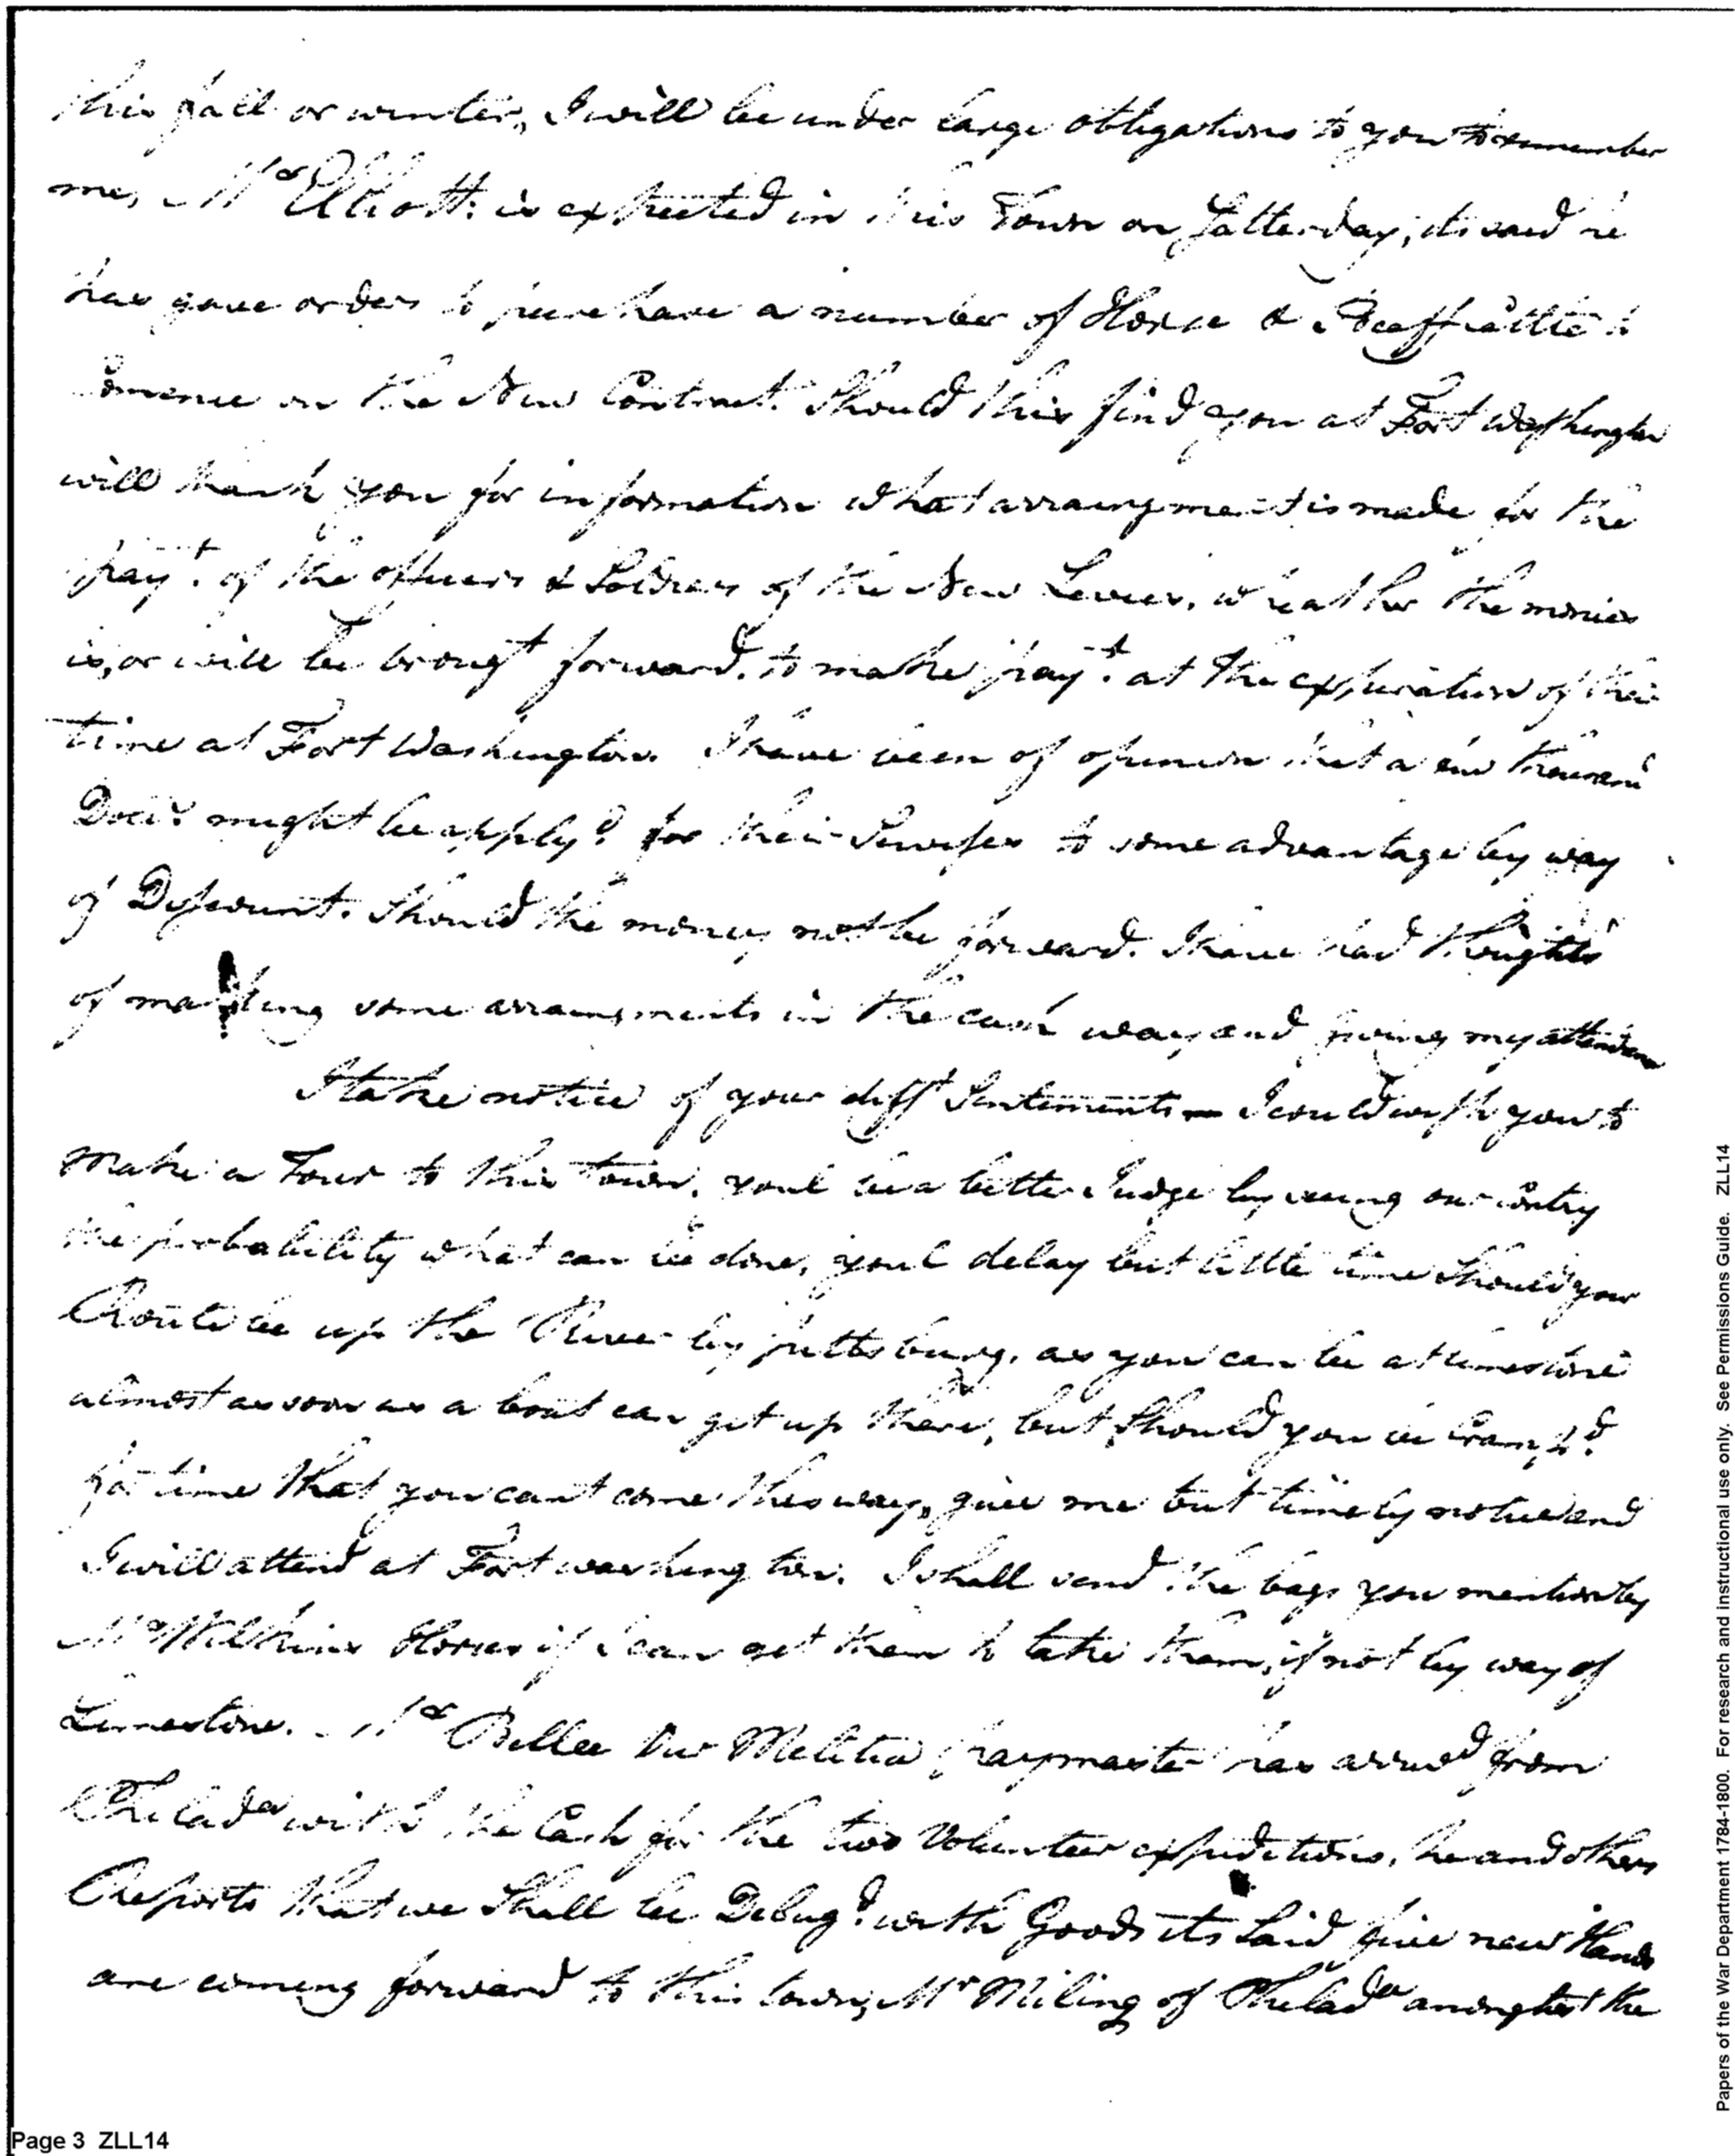 this fall or winter, I will be under large obligations to you to remember
me, Mr Elliott: is expected in this Town on Satterday, its said he
has gave orders to purchase a number of Horse & Beeff Cattle to
Comence on the New Contract. Should this find you at Fort Washington
will thank you for information what arraingment is made for the
payt. of the officers & Soldiers of the New Levies, wheather the monies
is, or will be brougt forward, to make payt. at the expiration of their
time at Fort Washington. I have been of opinion that a few thousand
Dolls. might be apply'd for their Services to some advantage by way
of Discount. Should the money not be forward. I have had thoughts
of making some arraingments in the cash way and giving my attendance
I take notice of your difft Sentiments — I could wish you to
make a Tour to this town, youl be a better Judge by seeing our Contry
the probability what can be done, youl delay but little time Should your
Route be up the River by pittsburg, as you can be at Limestone
almost as soon as a boat can get up there, but Should you be Cramp'd
for time that you cant come this way, give me but timely notice and
I will attend at Fort washington. I shall send the bags you mention by
Mr Wilkins Horses if I can get them to take them, if not by way of
Limestone. Mr Bellee Our Melitia paymaster has arrivd from
Philada with the Cash for the two Volunteer expeditions, he and others
Reports that we Shall be Delug'd with Goods its Said five new Hands
are coming forward to this town, Mr Miling of Philada amonghst the
Page 3 ZLL14
Papers of the War Department 1784-1800. For research and instructional use only. See Permissions Guide. ZLL14